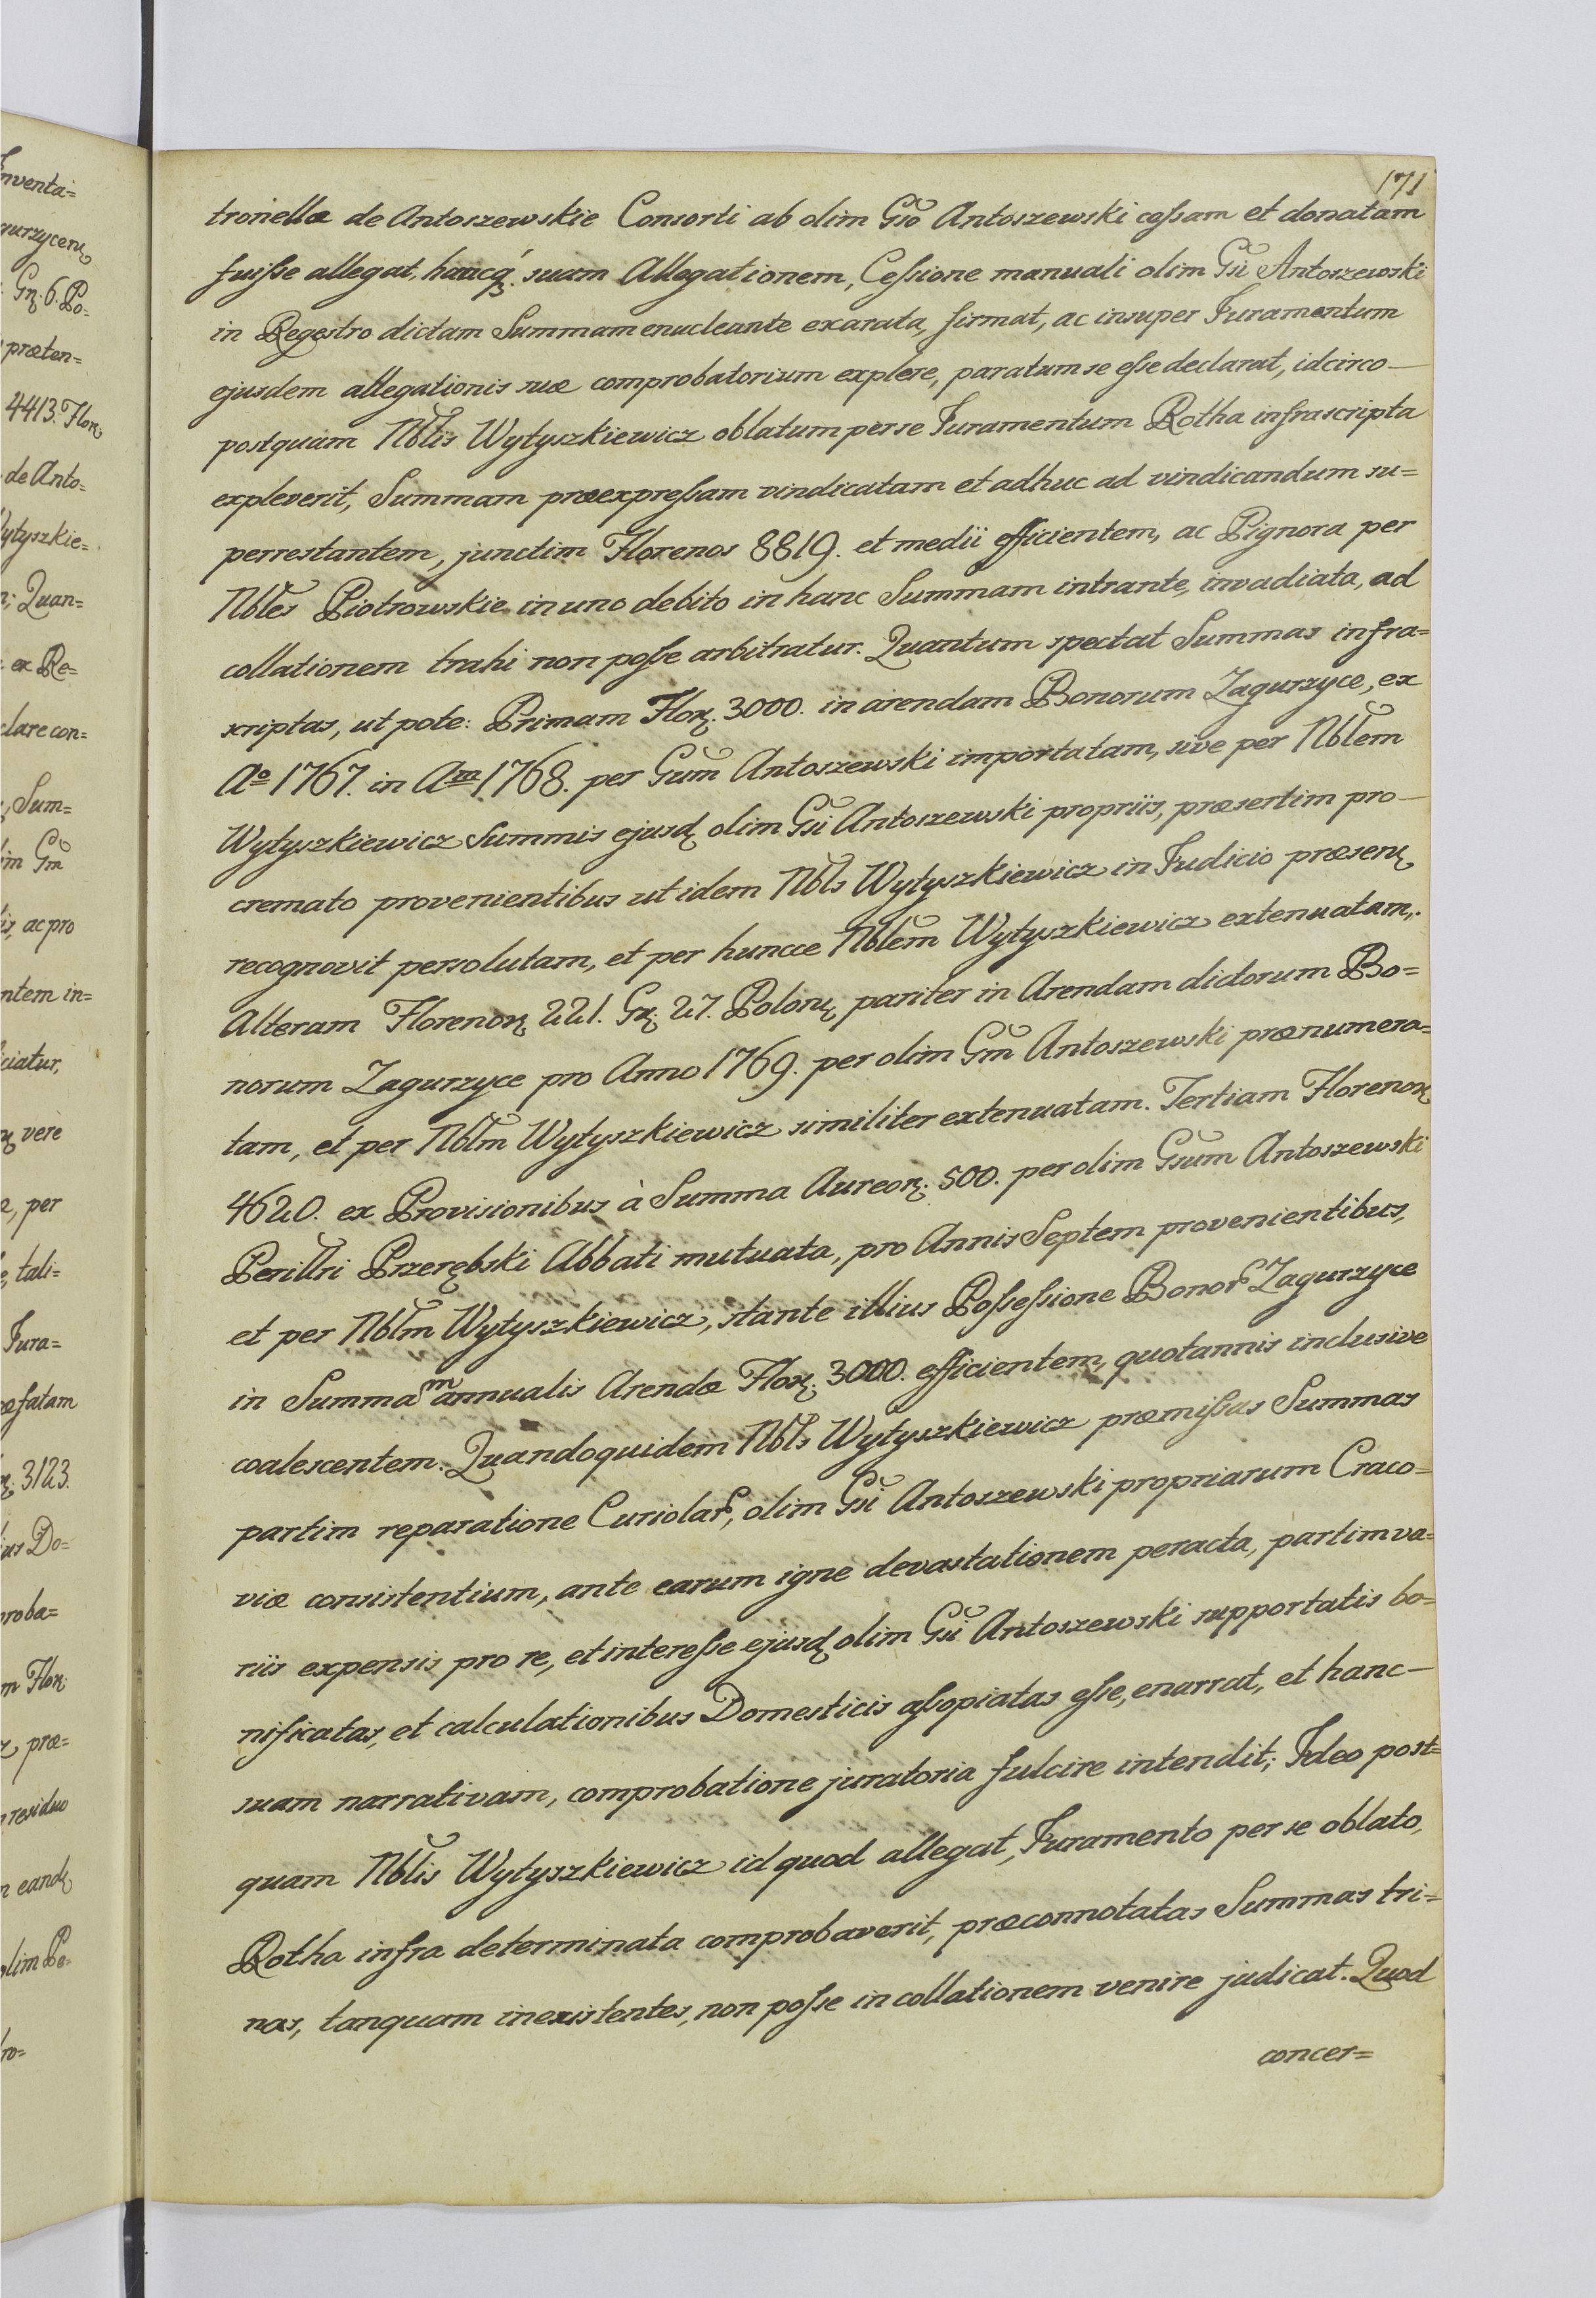 171
tronellæ de Antoszewskie Consorti ab olim Gso Antoszewski cessam et donatam
fuisse allegat, hancq. suam Allegationem, Cessione manuali olim Gsi Antoszewski
in Regestro dictam Summam enucleante exarata, firmat, ac insuper Juramentum
ejusdem allegationis suæ comprobatorium explere, paratum se esse declarat, idcirco
postquam Nblis Wytyszkiewicz oblatum per se Juramentum Rotha infrascripta
expleverit, Summam præexpressam vindicatam et adhuc ad vindicandum su=
perrestantem, junctim Florenos 8819. et medii efficientem, ac Pignora per
Nbles Piotrowskie in uno debito in hanc Summam intrante, invadiata, ad
collationem trahi non posse arbitratur. Quantum spectat Summas infra=
scriptas, ut pote: Primam Flor. 3000. in arendam Bonorum Zagurzyce, ex
Aº 1767. in Am 1768. per Gsum Antoszewski importatam, sive per Nblem
Wytyszkiewicz Summis ejusd. olim Gsi Antoszewski propriis, præsertim pro
cremato provenientibus ut idem Nbls Wytyszkiewicz in Judicio præsen.
recognovit persolutam, et per huncce Nblem Wytyszkiewicz extenuatam,.
Alteram Florenor. 221. Gr. 27. Polon. pariter in Arendam dictorum Bo=
norum Zagurzyce pro Anno 1769. per olim Gm Antoszewski prænumera=
tam, et per Nblm Wytyszkiewicz similiter extenuatam. Tertiam Florenor.
4620. ex Provisionibus à Summa Aureor. 500. per olim Gsum Antoszewski
Perillri Przerębski Abbati mutuata, pro Annis Septem provenientibus,
et per Nblm Wytyszkiewicz, stante illius Possessione Bonor. Zagurzyce
in Summam annualis Arendæ Flor. 3000. efficientem, quotannis inclusive
coalescentem. Quandoquidem Nbls Wytyszkiewicz præmissas Summas
partim reparatione Curiolar., olim Gsi Antoszewski propriarum Craco=
viæ consistentium, ante earum igne devastationem peracta, partim va=
riis expensis pro re, et interesse ejusd. olim Gsi Antoszewski supportatis bo=
nificatas, et calculationibus Domesticis assopiatas esse, enarrat, et hanc
suam narrativam, comprobatione juratoria fulcire intendit; Ideo post=
quam Nblis Wytyszkiewicz id quod allegat, Juramento per se oblato,
Rotha infra determinata comprobaverit, præconnotatas Summas tri=
nas, tanquam inexistentes, non posse in collationem venire judicat. Quod
concer=